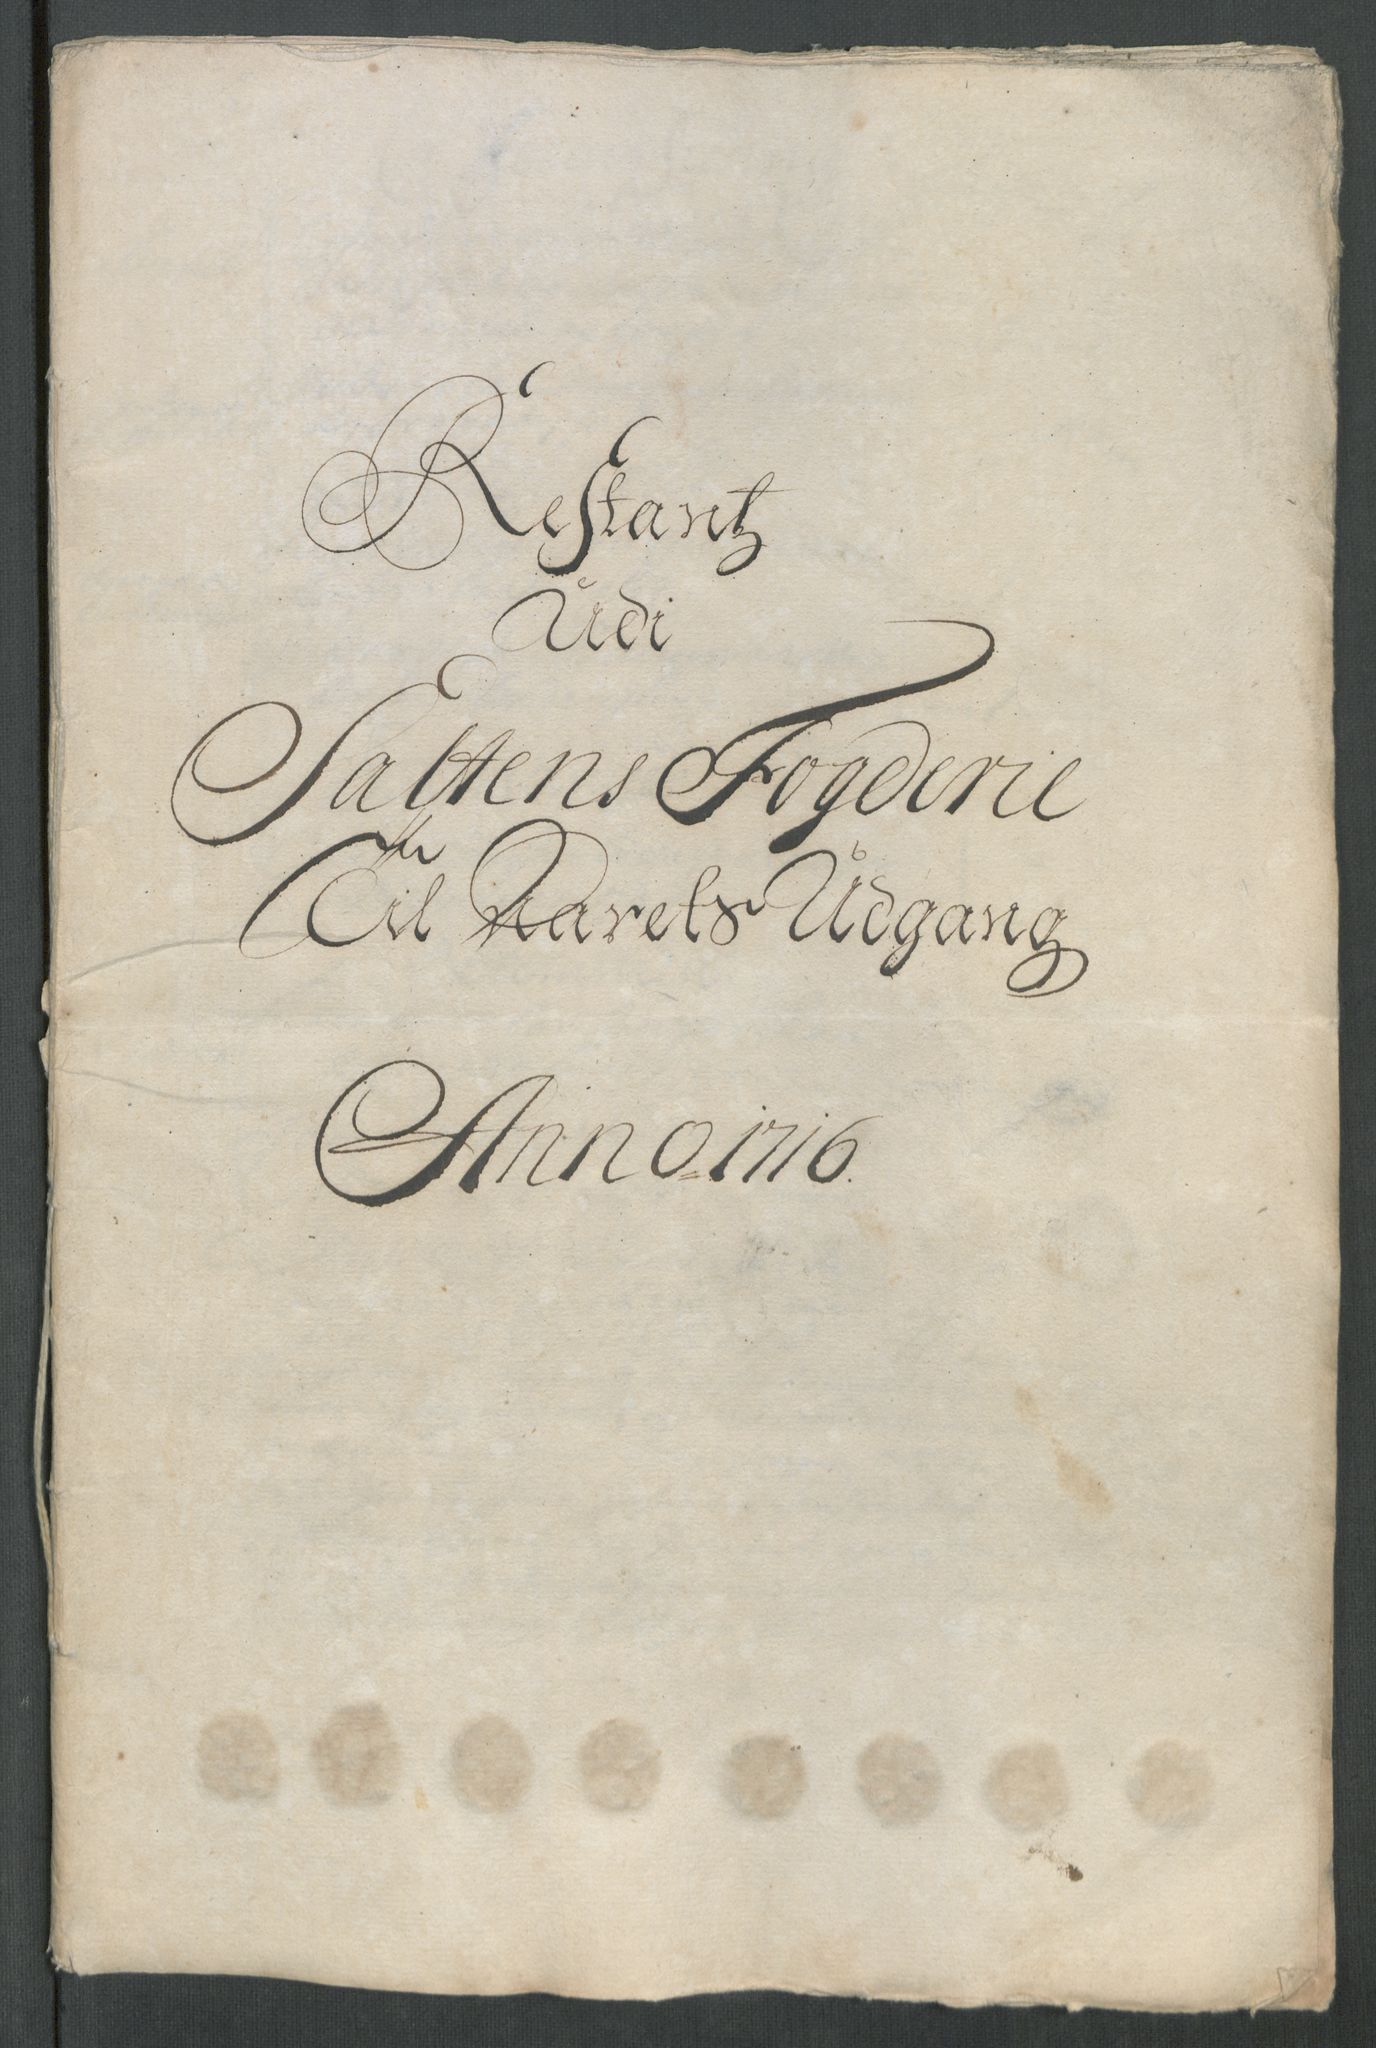 Restantz
Udi
Saltens Fogderie
Til Aarets Udgang
Anno 1716.